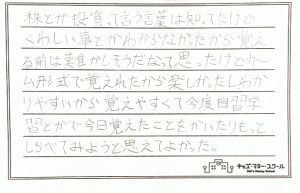 株とか投資って言う言葉は知ってたけど
くわしい事とかわからなかたから覚え
る前は難かしそうだなって思ったけどゲー
ム形式で覚えれたから楽しかったしわか
りやすいから覚えやすくて今度自習学
習とかで今日覚えたことをかいたりもっと
しらべてみようと思えてよかった。
キッズ・マネー・スクール
Kid's Money School